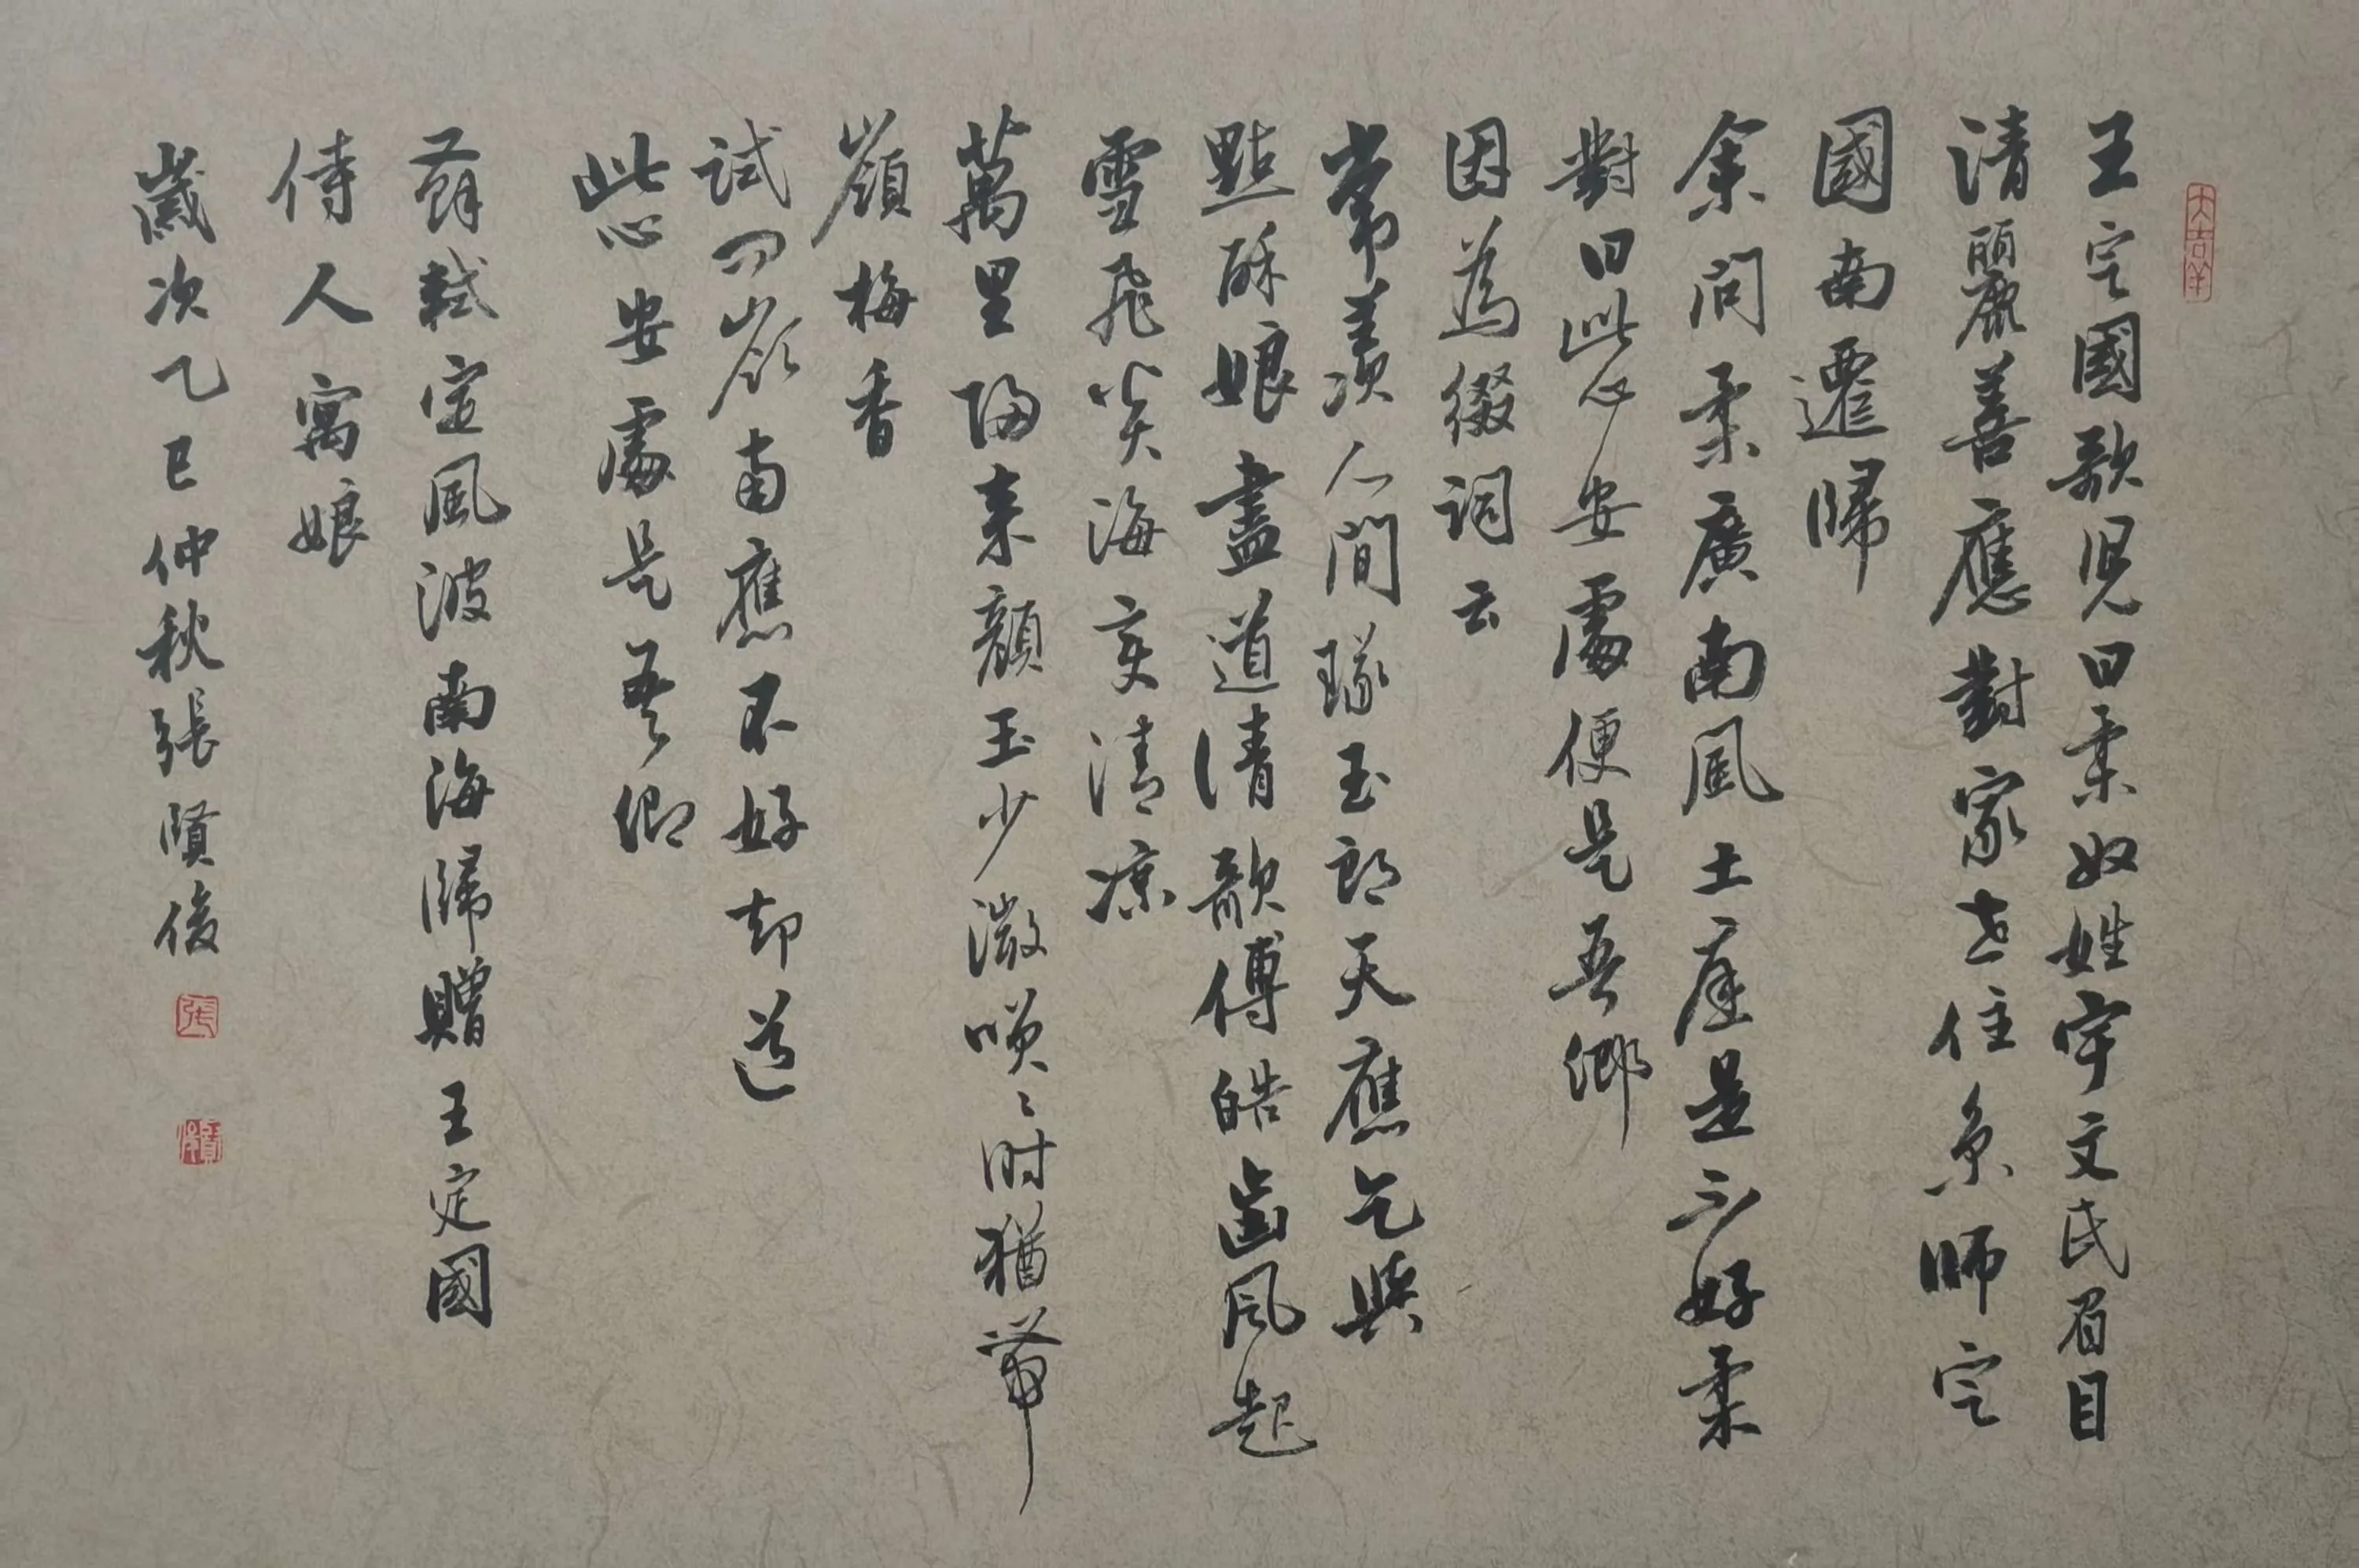 大吉羊
王定國歌兒曰柔奴姓宇文氏眉目
清麗善應對家世住京師定
國南遷歸
余問柔廣南風土應是不好柔
對曰此心安處便是吾鄉
因為綴詞云
常羨人間琢玉郎天應乞與
點酥娘盡道清歌傳皓齒風起
雪飛炎海變清涼
萬里歸來顏玉少微咲〻時猶帶
嶺梅香
試問嶺南應不好却道
此心安處是吾鄉
蘇軾定風波南海歸贈王定國
侍人寓娘
歲次乙巳仲秋張賢俊
張
賢俊